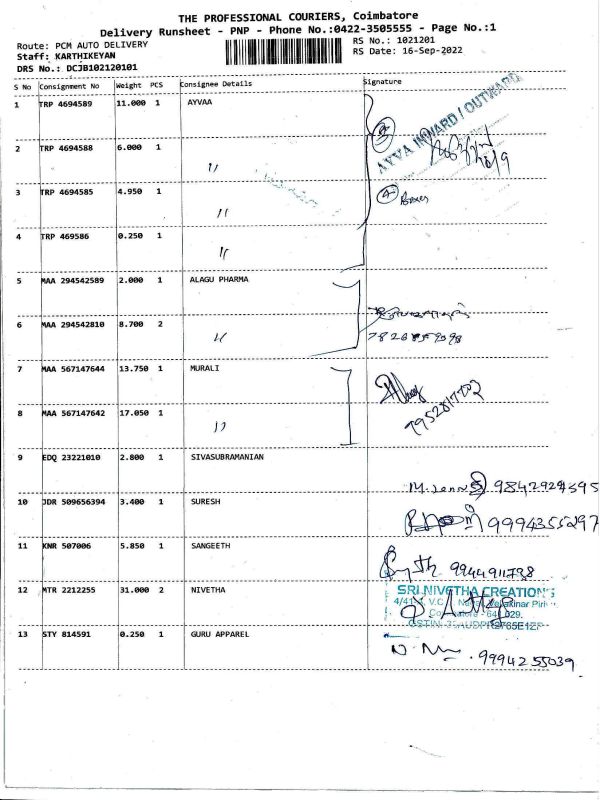 THE PROFESSIONAL COURIERS, Coimbatore
Delivery Runsheet - PNP - Phone No.:0422-3505555 - Page No.:1
Route: PCM AUTO DELIVERY
RS No.: 1021201
Staff: KARTHIKEYAN
RS Date: 16-Sep-2022
DRS No.: DCJB102120101
S No Consignment No Weight PCS Consignee Details Signature
1 TRP 4694589 11.000 1 AYVAA
AYVA INWARD / OUTWARD
2 TRP 4694588 6.000 1 "
3 TRP 4694585 4.950 1 "
4 Boxes
4 TRP 469586 0.250 1 "
5 MAA 294542589 2.000 1 ALAGU PHARMA
6 MAA 294542810 8.700 2 "
7 MAA 567147644 13.750 1 MURALI
7952817702
8 MAA 567147642 17.050 1 "
9 EDQ 23221010 2.800 1 SIVASUBRAMANIAN
10 JDR 509656394 3.400 1 SURESH
9994355297
11 KNR 507006 5.850 1 SANGEETH
9944911798
12 MTR 2212255 31.000 2 NIVETHA
SRI NIVETHA CREATION'S
13 STY 814591 0.250 1 GURU APPAREL
9994255039